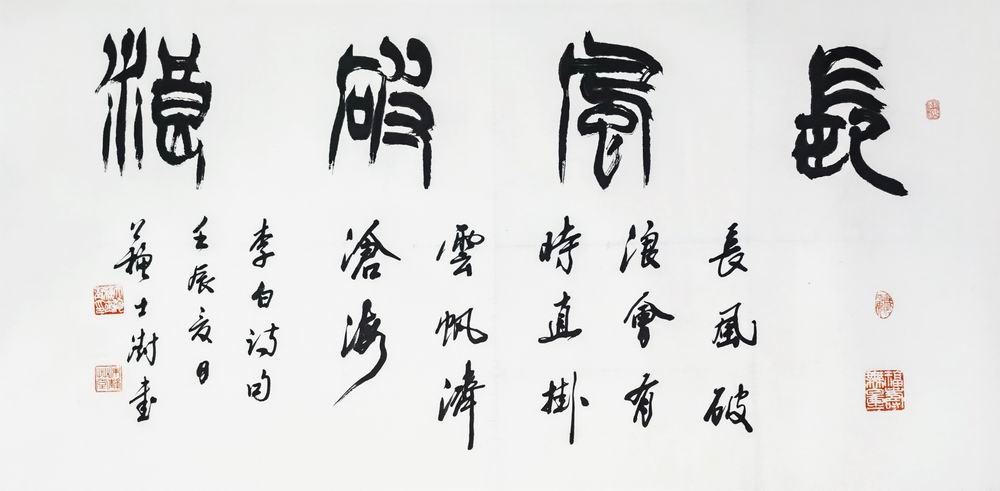 長風破浪
長風破
浪會有
時直掛
雲帆濟
滄海
李白詩句
壬辰夏日
蘇士澍書
福壽無量